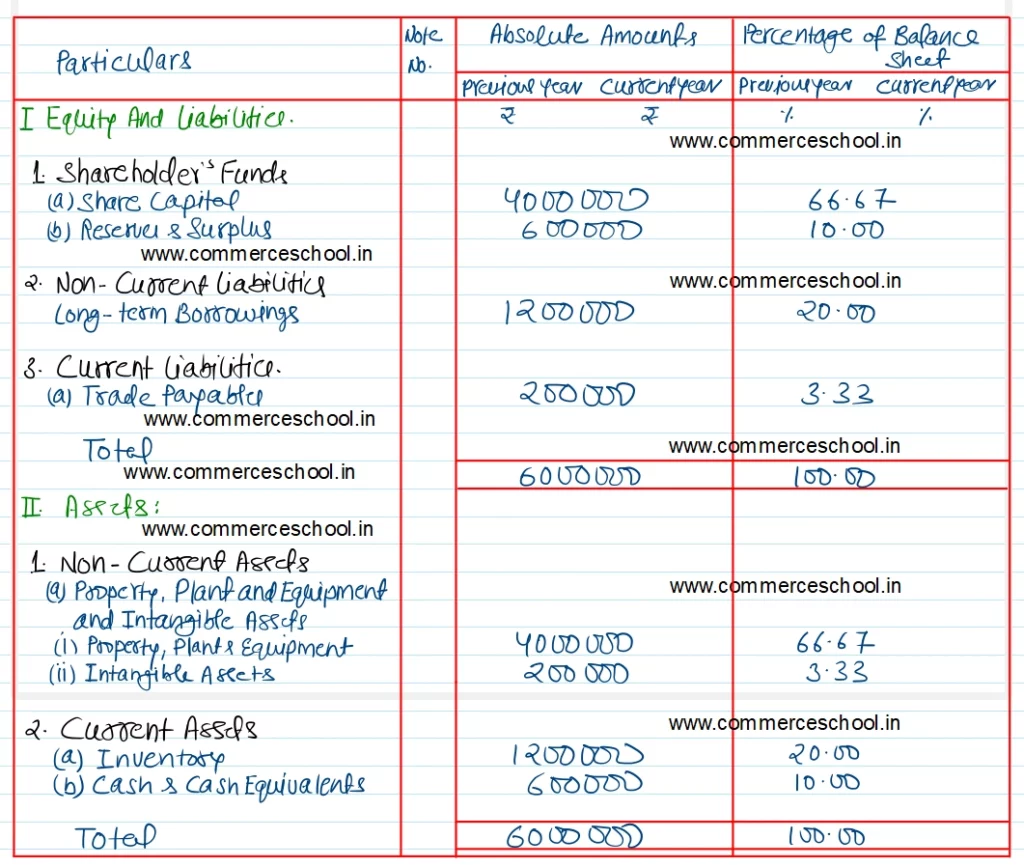 Particulars Note No. Absolute Amounts Percentage of Balance Sheet
Previous year Current year Previous year Current year
I Equity And Liabilities. ₹ ₹ % %
www.commerceschool.in
1. Shareholder's Funds
(a) Share Capital 4000000 66.67
(b) Reserves & Surplus 600000 10.00
www.commerceschool.in
2. Non-Current Liabilities www.commerceschool.in
Long-term Borrowings 1200000 20.00
3. Current Liabilities.
(a) Trade Payables 200000 3.33
www.commerceschool.in
Total www.commerceschool.in
www.commerceschool.in 6000000 100.00
II. Assets:
www.commerceschool.in
1. Non-Current Assets
(a) Property, Plant and Equipment www.commerceschool.in
and Intangible Assets
(i) Property, Plant & Equipment 4000000 66.67
(ii) Intangible Assets 200000 3.33
2. Current Assets www.commerceschool.in
(a) Inventory 1200000 20.00
(b) Cash & Cash Equivalents 600000 10.00
Total 6000000 100.00